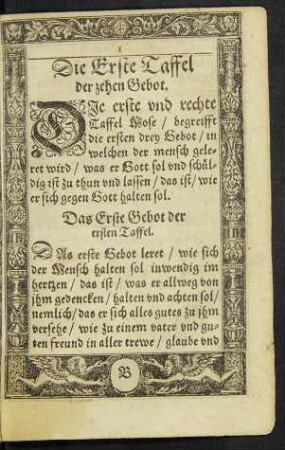 1
Die Erste Taffel
der zehen Gebot.
DJe erste vnd rechte
Taffel Mose / begreifft
die ersten drey Gebot / in
welchen der mensch gele-
ret wird / was er Gott sol vnd schül-
dig ist zu thun vnd lassen / das ist / wie
er sich gegen Gott halten sol.
Das Erste Gebot der
ersten Taffel.
DAs erste Gebot leret / wie sich
der Mensch halten sol inwendig im
hertzen / das ist / was er allweg von
jhm gedencken / halten vnd achten sol /
nemlich / das er sich alles gutes zu jhm
versehe / wie zu einem vater vnd gu-
ten freund in aller trewe / glaube vnd
B